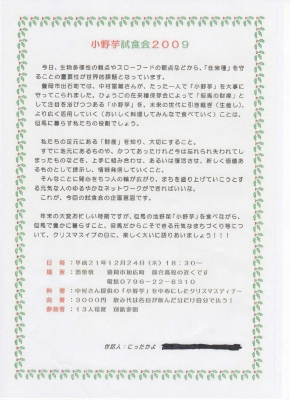 小野芋試食会2009
今日、生物多様性の観点やスローフードの観点などから、「在来種」を守
ることの重要性が世界的課題となっています。
豊岡市出石町では、中村富雄さんが、たった一人で「小野芋」を大事に
守ってこられました。ひょうごの在来種保存会によって「但馬の財産」と
して注目を浴びつつある「小野芋」を、未来の世代に引き継ぎ（生産し）、
より広く活用していく（おいしく料理してみんなで食べていく）ことは、
但馬に暮らす私たちの役割でしょう。
私たちの足元にある「財産」を知り、大切にすること。
すでに足元にあるものや、かつてあったけれど今は忘れられ失われてし
まったものなどを、上手に組み合わせ、あるいは復活させ、新しく価値あ
るものとして提示し、情報発信していくこと。
そんなことに関心をもつ人の輪が広がり、まちを盛り上げていこうとす
る元気な人のゆるやかなネットワークができればいいな。
これが、今回の試食会の企画意図です。
年末の大変お忙しい時期ですが、但馬の地野菜「小野芋」を食べながら、
但馬で豊かに暮らすこと、但馬だからこそできる元気なまちづくり等につ
いて、クリスマスイブの日に、楽しく大いに語りあいましょう！！！
日 時：平成21年12月24日（木）18：30～
豊岡市加広町
電話0796-22-8310
料 理：中村さん提供の「小野芋」を中心にしたクリスマスディナー
会 費：3000円 飲み代は各自が飲んだ分だけ自分で払う！
参加者：13人程度 別紙参照
世話人：にったかよ